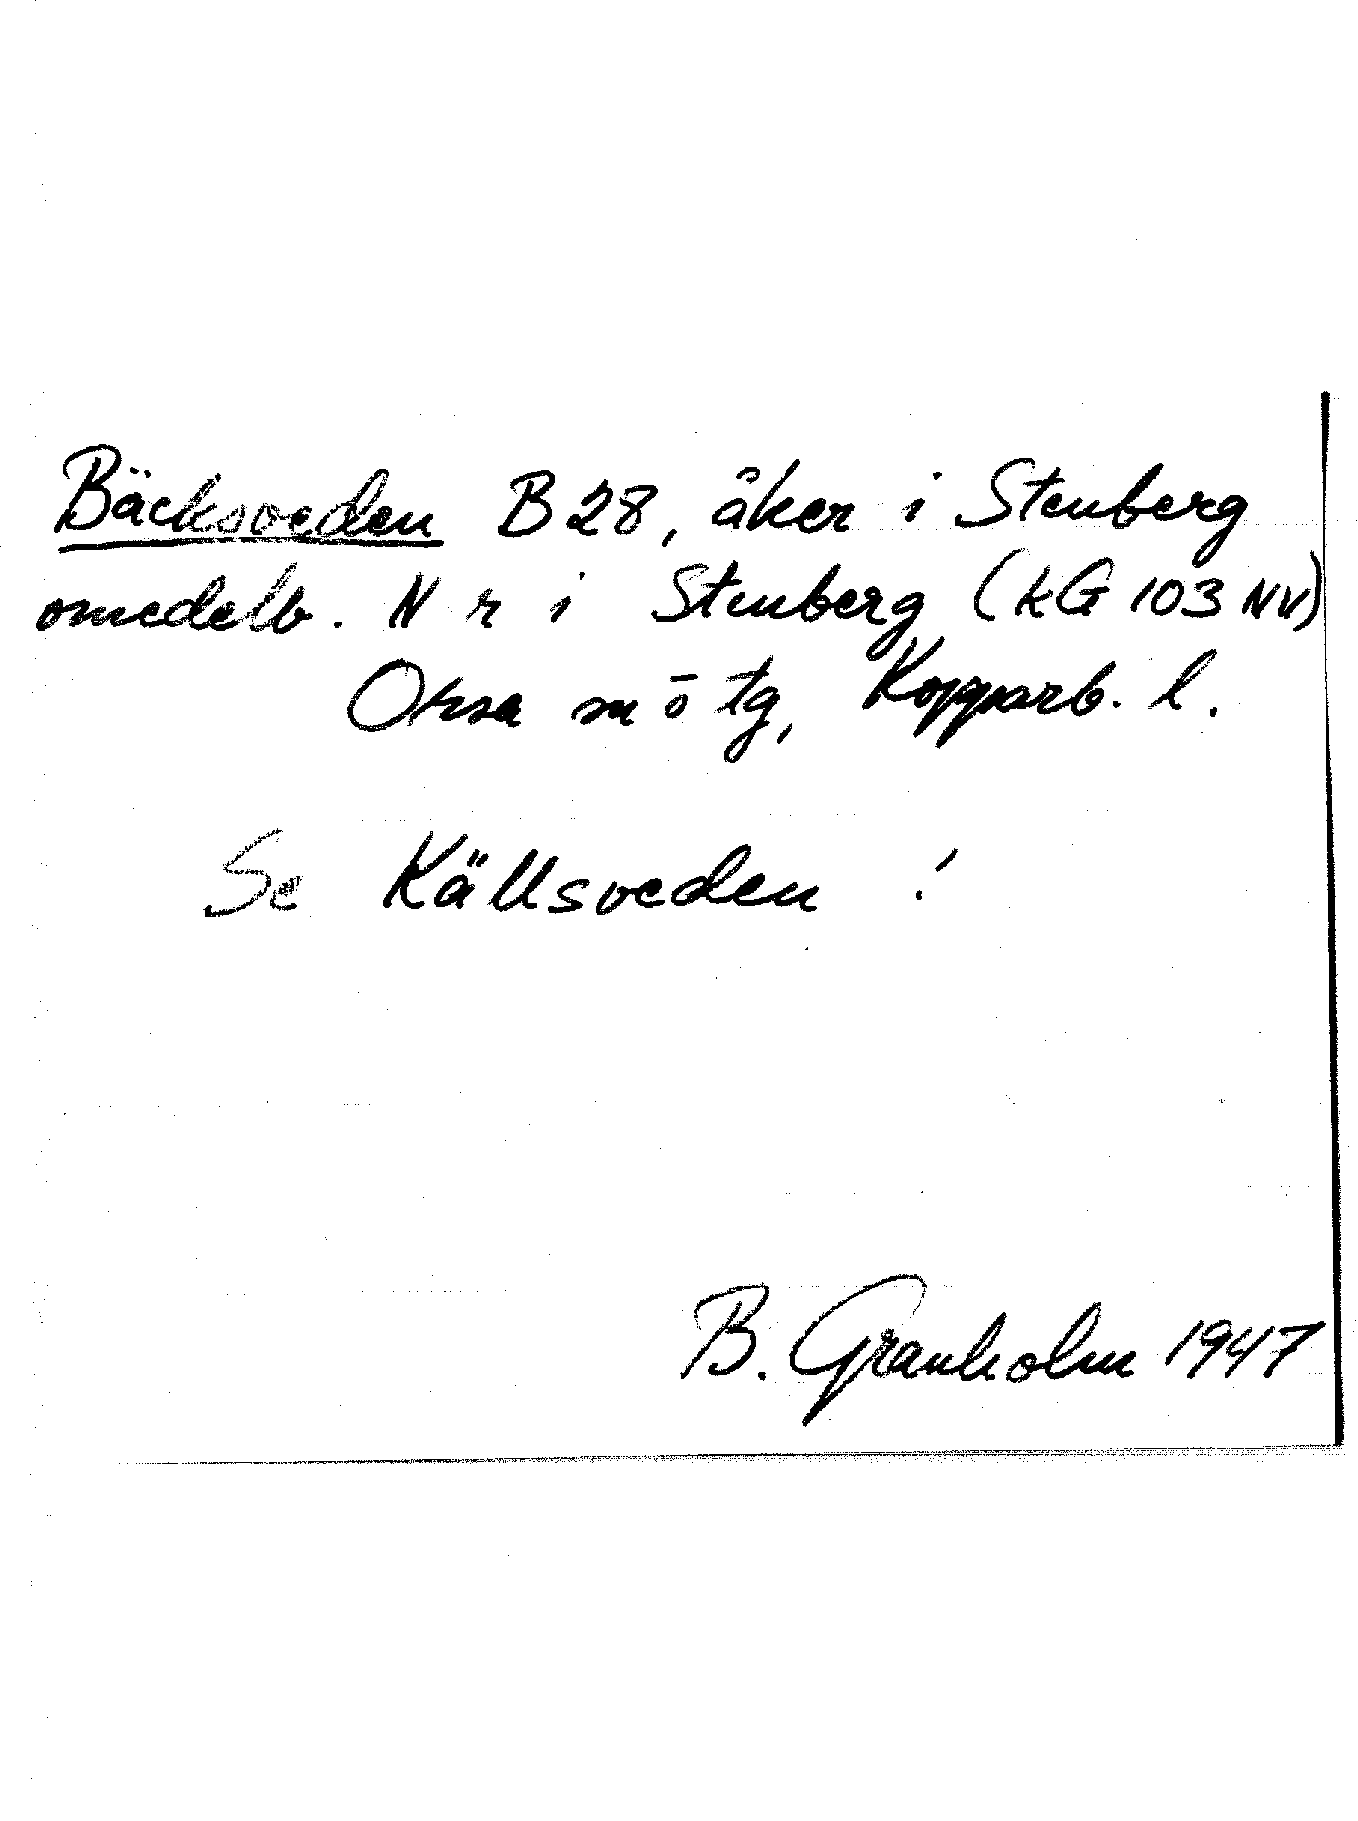 Bäcksveden B28, åker i Stenberg
omedelb. N r i Stenberg (kG 103 NV)
Orsa sn ö tg, Kopparb. l.
Se Källsveden !
B. Granholm 1947